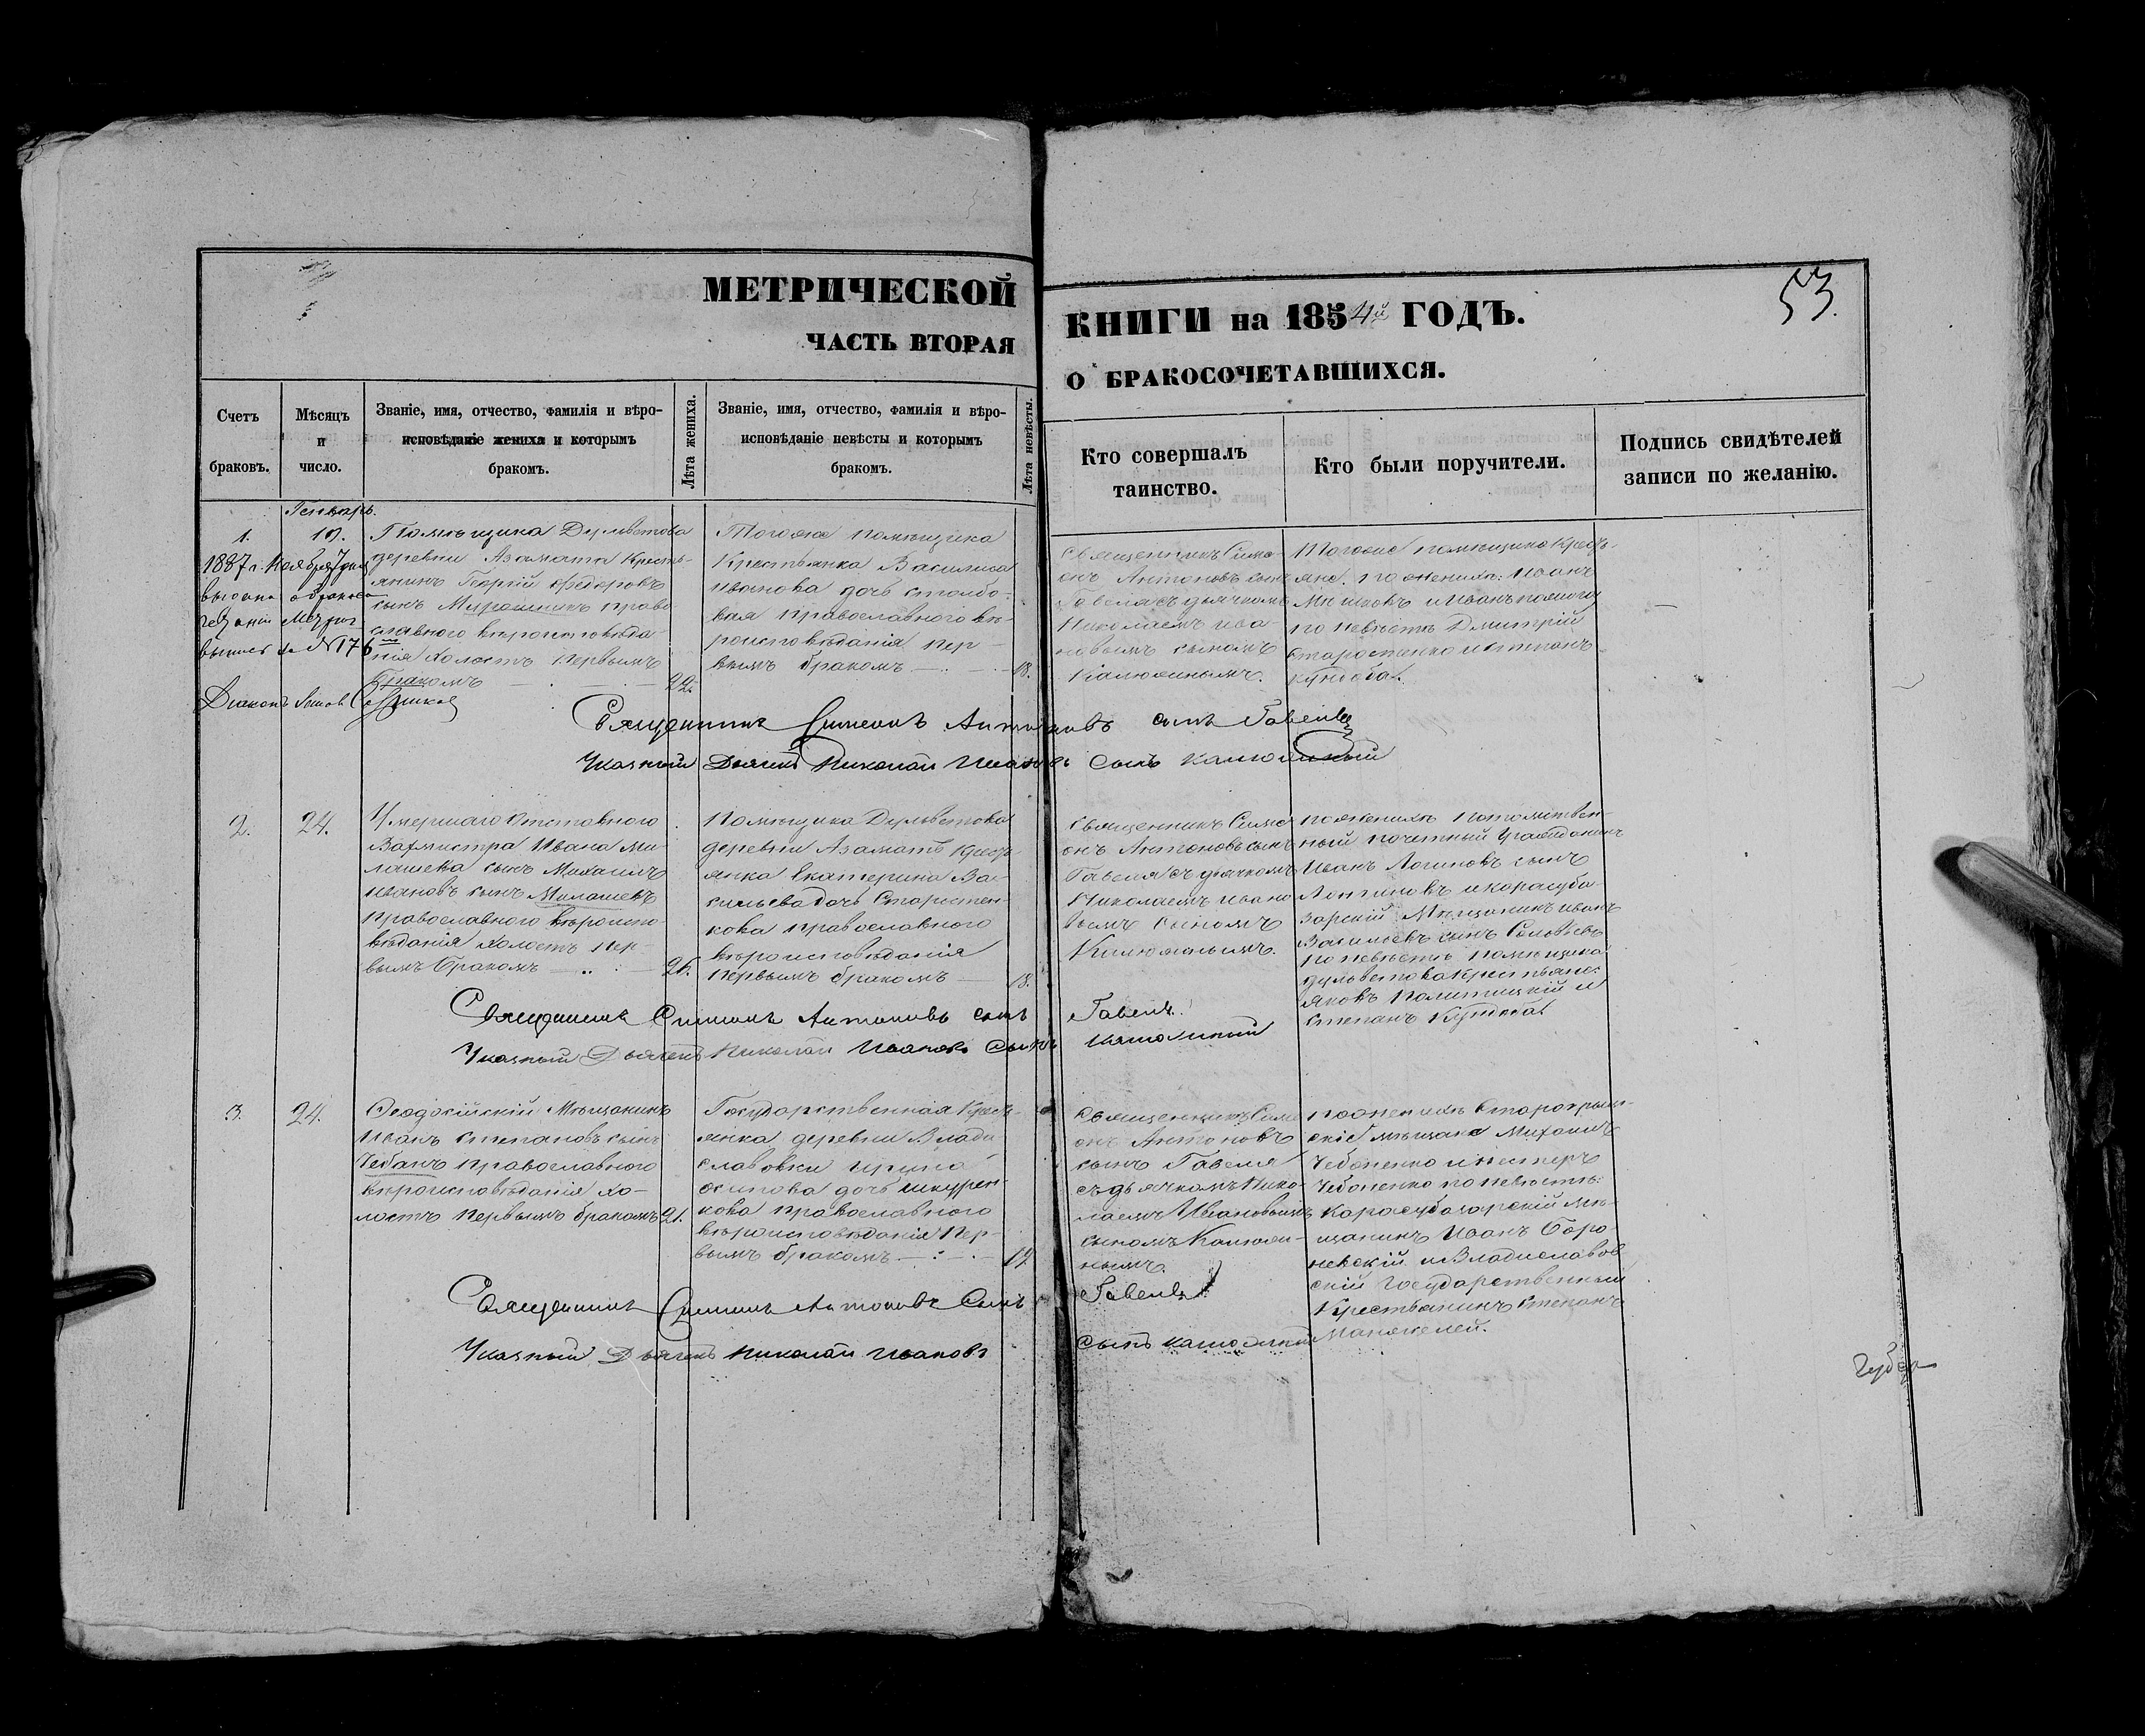 МЕТРИЧЕСКОЙ
ЧАСТЬ ВТОРАЯ
Счетъ браковъ.
Мѣсяцъ и число.
Званіе, имя, отчество, фамилія и вѣро-
исповѣданіе жениха и которымъ
бракомъ.
Лѣта жениха.
Званіе, имя, отчество, фамилія и вѣро-
исповѣданіе невѣсты и которымъ
бракомъ.
Лѣта невѣсты.
КНИГИ на 1854й ГОДЪ.
53.
О БРАКОСОЧЕТАВШИХСЯ.
Кто совершалъ
таинство.
Кто были поручители.
Подпись свидѣтелей
записи по желанію.
Генварь.
1.
1887 г. Ноября 7 дня
Діаконъ
Помѣщика Дульветова
деревни Азаматъ кресть-
янинъ Георгій Федоровъ
сынъ православнаго
вѣроисповѣда-
нія холостъ первымъ
бракомъ
22.
Тогоже помѣщика
Крестьянка Василиса
Иванова дочь столбо-
вая православнаго вѣ-
роисповѣданія пер-
вымъ бракомъ
18.
Священникъ Симе-
онъ Антоновъ сынъ
Гавеля съ дьячкомъ
Николаемъ Ива-
новымъ сыномъ
Тогоже помѣщика крестья-
не. по женихѣ: Иванъ
по невѣстѣ Дмитрій
Старостенко и Степанъ
Кундоба.
Священникъ Симеонъ Антоновъ сынъ Гавеля
Указный Дьячекъ Николай Ивановъ Сынъ
2.
24.
Умершаго отставнаго
Вахмистра Ивана Ми-
лашева сынъ Михаилъ
Ивановъ сынъ Милашевъ
Православнаго вѣроиспо-
вѣданія холостъ пер-
вымъ бракомъ
26.
Помѣщика Дульветова
деревни Азаматъ Кресть-
янка Екатерина Ва-
сильева дочь Старостен-
кова православнаго
вѣроисповѣданія
первымъ бракомъ
18.
Священникъ Симе-
онъ Антоновъ сынъ
Гавеля съ дьячкомъ
Николаемъ Ивано-
вымъ сыномъ
по женихѣ потомствен-
ный почетный гражданинъ
Иванъ Логиновъ сынъ
Логиновъ и карасуба-
зарскій Мѣщанинъ Иванъ
Васильевъ сынъ Соловьевъ
по невѣстѣ помѣщика
Дульветова крестьяне:
Яковъ Политицкій и
Степанъ Кундоба
Священникъ Симеонъ Антоновъ сынъ Гавеля.
Указный Дьячекъ Николай Ивановъ Сынъ
3.
24.
Феодосійскій Мѣщанинъ
Иванъ Степановъ сынъ
Чебанъ православнаго
вѣроисповѣданія хо-
лостъ первымъ бракомъ
21.
Государственная Кресть-
янка деревни Влади-
славовки Ирина
Осипова дочь Шкурен-
кова православнаго
вѣроисповѣданія Пер-
вымъ бракомъ
19.
Священникъ Симе-
онъ Антоновъ
сынъ Гавеля
съ дьячкомъ Нико-
лаемъ Ивановымъ
сыномъ
по женихѣ Старокрым-
скіе мѣщане Михаилъ
Чебаненко и Нестеръ
Чебаненко по невѣстѣ:
Карасубазарскій мѣ-
щанинъ Иванъ Боро-
невскій и Владиславов-
скій Государственный
Крестьянинъ Степанъ
Священникъ Симеонъ Антоновъ Сынъ Гавеля
Указный Дьячекъ Николай Ивановъ Сынъ